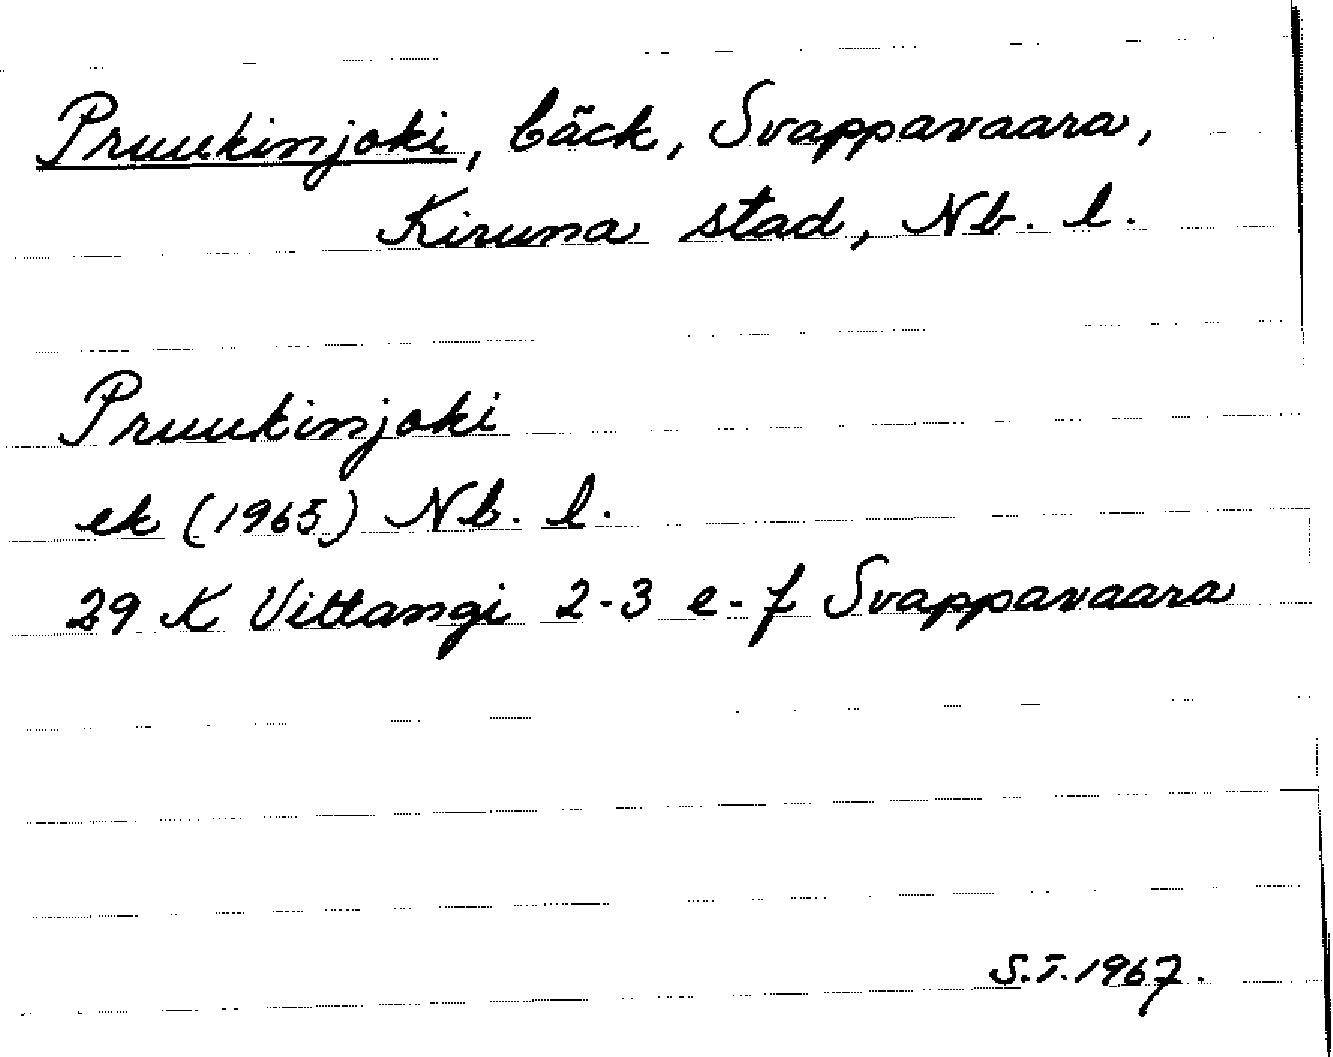 Pruukinjoki, bäck, Svappavaara,
Kiruna stad, Nb. l.
Pruukinjoki
ek (1965) Nb. l.
29 K Vittangi 2-3 e-f Svappavaara
S.T. 1967.